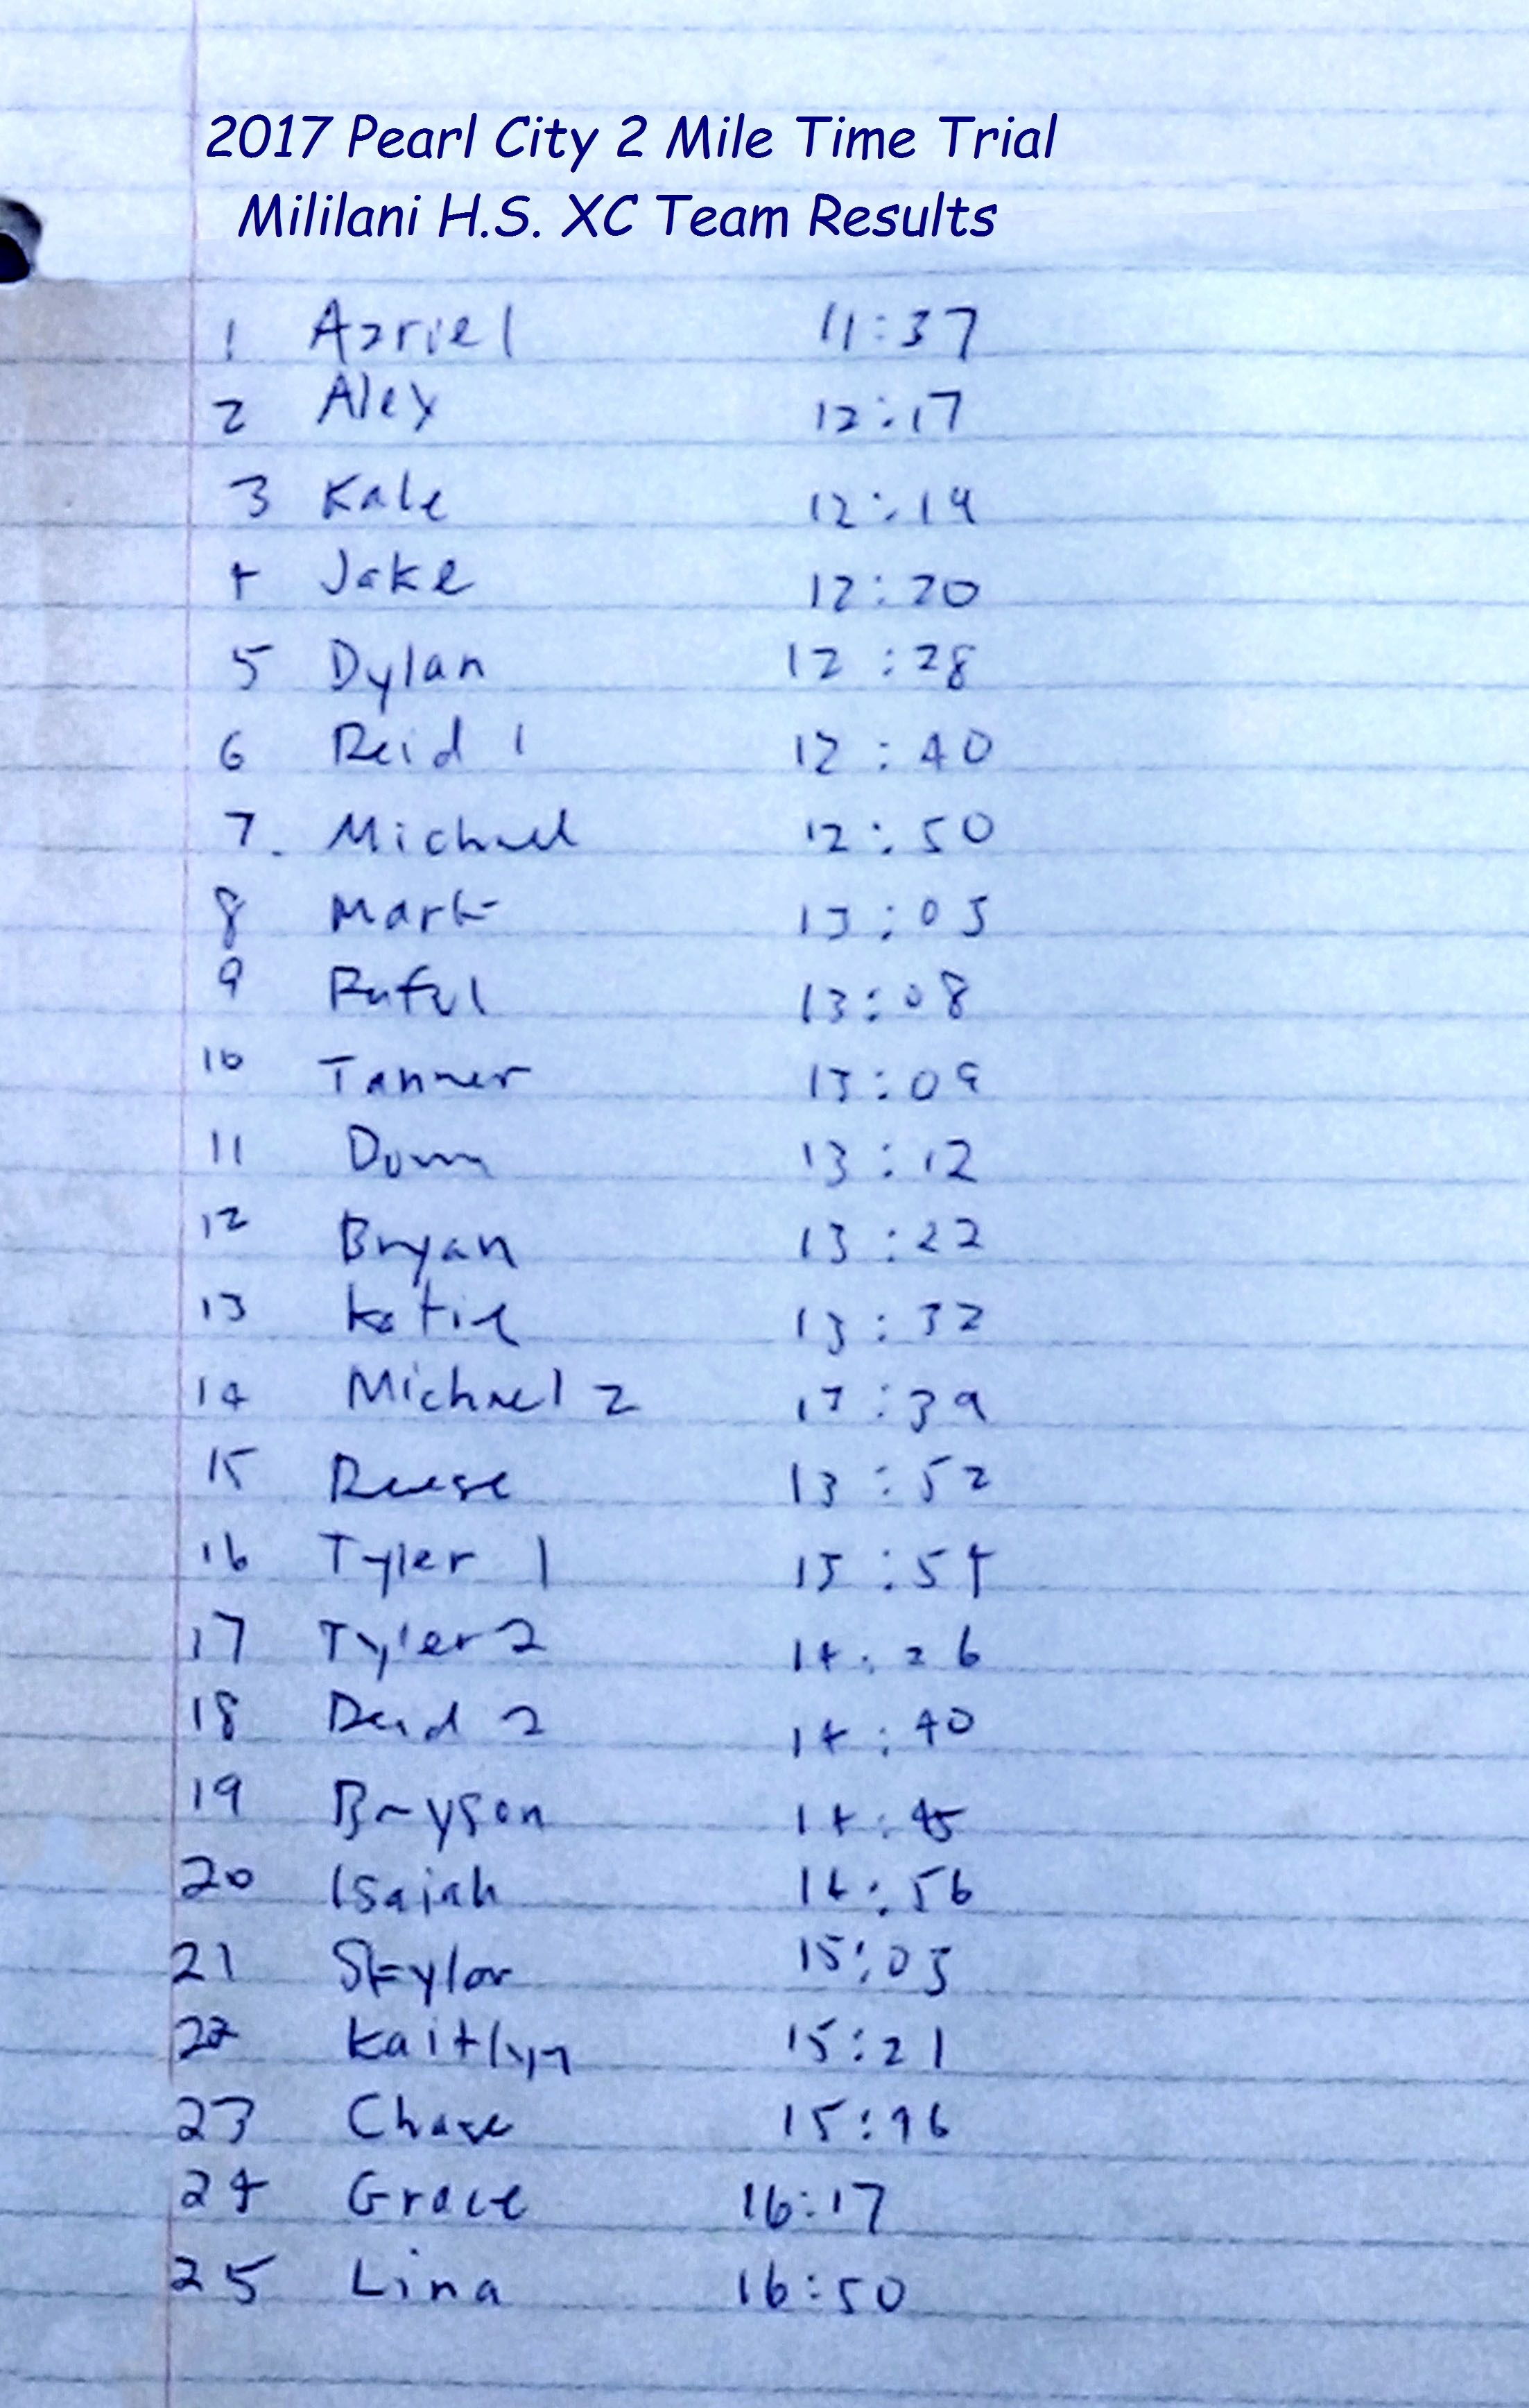 2017 Pearl City 2 Mile Time Trial
Mililani H.S. XC Team Results
1 Azriel 11:37
2 Alex 12:17
3 Kale 12:19
4 Jake 12:20
5 Dylan 12:28
6 Reid 1 12:40
7. Michael 12:50
8 Mark 13:03
9 Rafael 13:08
10 Tanner 13:09
11 13:12
12 Bryan 13:22
13 Katie 13:32
14 Michael 2 13:39
15 Reese 13:52
16 Tyler 1 13:54
17 Tyler 2 14:26
18 Reid 2 14:40
19 Bryson 14:45
20 Isaiah 14:56
21 Skylar 15:03
22 Kaitlyn 15:21
23 Chase
24 Grace 16:17
25 Lina 16:50